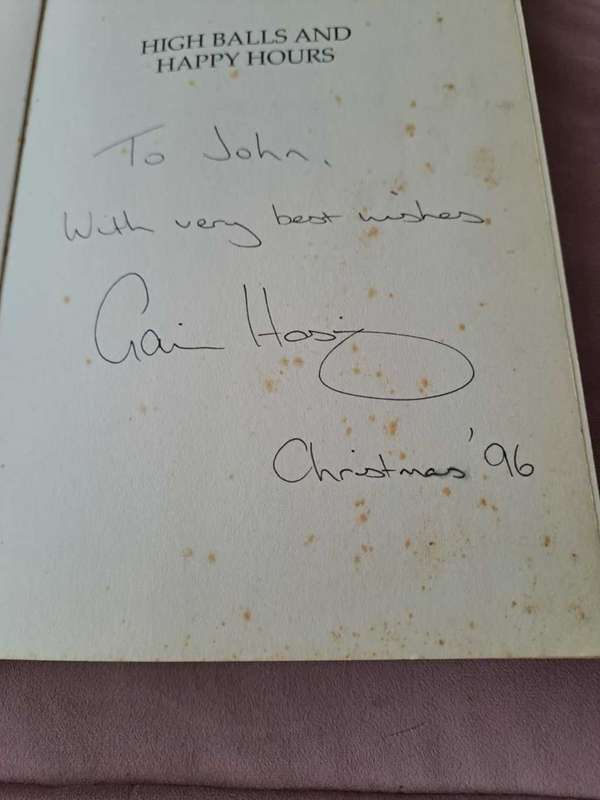 HIGH BALLS AND
HAPPY HOURS
To John,
With very best wishes
Gavin Hastings
Christmas '96